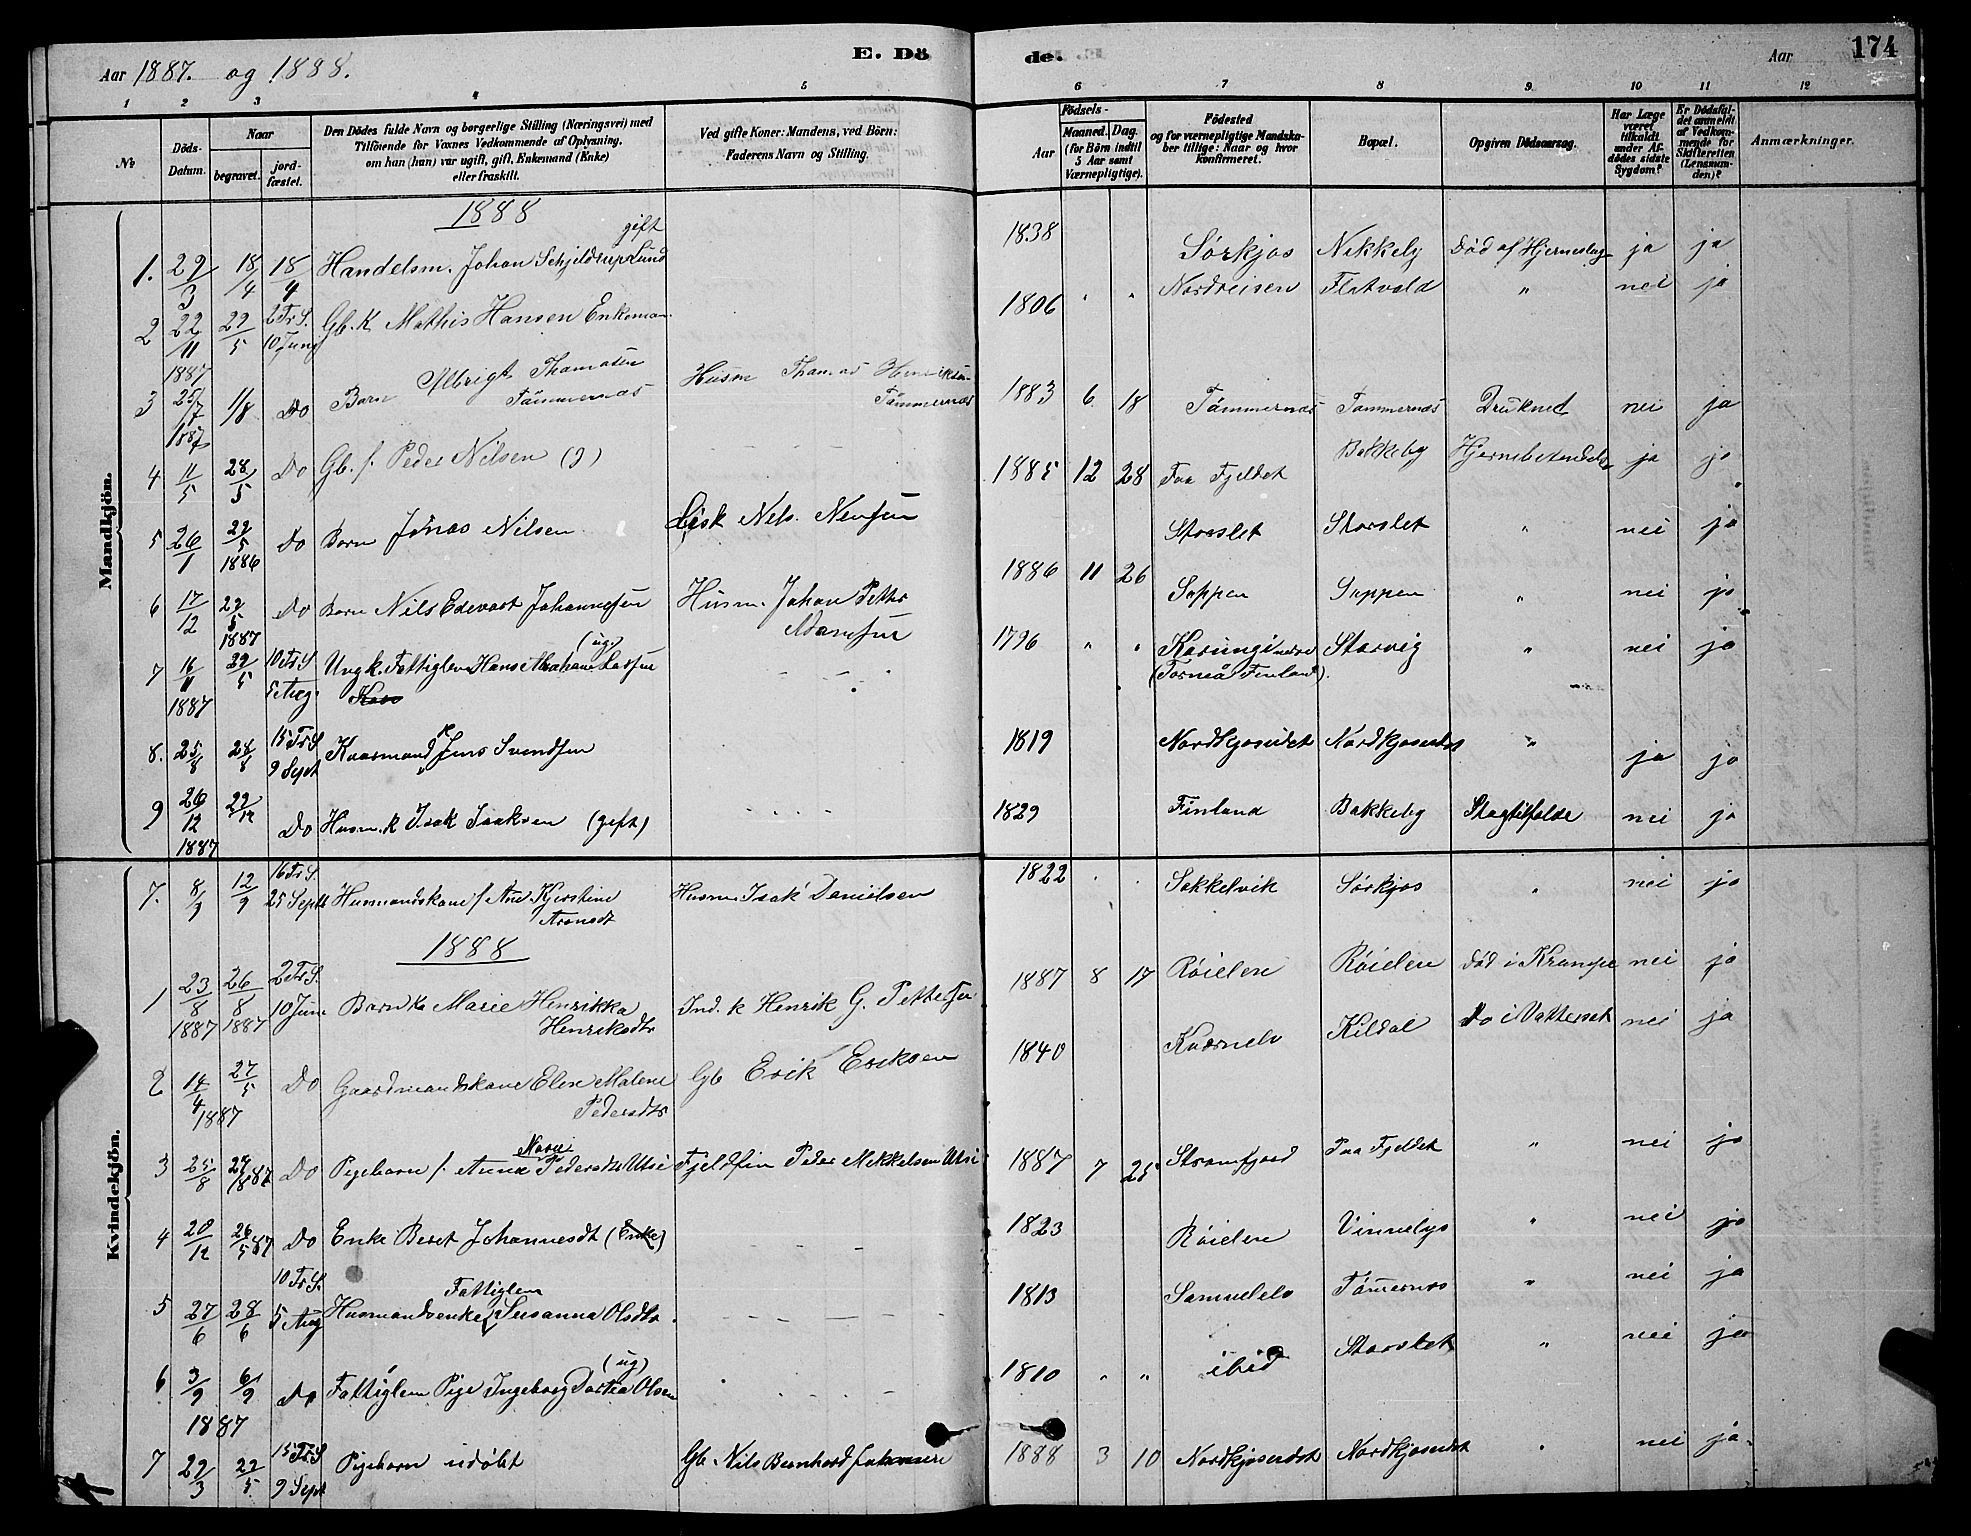 Aar 1887. og 1888.
E. Dö
de.
Aar
174
1 2 3 4 5 6 7 8 9 10 11 12
No
Döds-Datum.
Naar
begravet.
jord-fæstet.
Den Dödes fulde Navn og borgerlige Stilling (Næringsvei) med
Tilföiende for Voxnes Vedkommende af Oplysning,
om han (hun) var ugift, gift, Enkemand (Enke)
eller fraskilt.
Ved gifte Koner: Mandens, ved Börn:
Faderens Navn og Stilling.
Födsels-
Aar
Maaned. Dag.
(for Börn indtil
5 Aar samt
Værnepligtige).
Födested
og for værnepligtige Mandska-
ber tillige: Naar og hvor
konfirmeret.
Bopæl.
Opgiven Dödsaarsag.
Har Læge
været
tilkaldt
under Af-
dödes sidste
Sygdom?
Er Dödsfal-
det anmeldt
af Vedkom-
mende for
Skifteretten
(Lensman-
den)?
Anmærkninger.
Mandkjön.
1888
gift
1. 29/3 18/4 18/4 Handelsm. Johan Schjelderup Lund 1838 Sørkjos Nikkelby Død af Hjerneslag ja ja
2 22/11 1887 29/5 2 Tr S. 10 Juny Gb. K Mathis Hansen Enkeman 1806 " " Nordreisen Flatvold " nei ja
3 25/7 1887 1/8 Do Barn Albrigt Thomasen Tømmernæs Husm Thomas Henriksen Tømmernæs 1883 6 18 Tømmernæs Tømmernæs Druknet nei ja
4 11/5 28/5 Do Gb. f. Peder Nilsen (g) 1885 12 28 Paa Fjeldet Bakkeby ja ja
5 26/1 29/5 1886 Do Barn Jonas Nilsen Nils Storslet Storslet " nei ja
6 17/12 29/5 1887 Do Barn Nils Edevart Johannesen Husm. Johan Petter 1886 11 26 Sappen Sappen " nei ja
7 16/11 1887 29/5 10 Tr S 5 Aug. Ungk. Fattiglem Hans Abraham Larsen (ug) 1796 " " Karungi nedre (Torneå Finland). Storvig " nei ja
8. 25/8 28/8 15 Tr S 9 Sept Kvasmand Jens Svendsen 1819 Nordkjoseidet Nordkjoseidet " ja ja
9 26/12 1887 29/12 Do Husm. k Isak Isaksen (gift) 1829 Finland Bakkeby Slagtilfælde nei ja
Kvindekjön.
7. 8/9 12/9 16 Tr S. 25 Sept Husmandskone f Ane Kjerstine Aronsdt Husm. Isak Danielsen 1822 Sokkelvik Sørkjos " nei ja
1888
1 23/8 1887 26/8 1887 2 Tr S. 10 Jun Barn k Marie Henrikka Henriksdtr Ind. k Henrik G. Pettersen 1887 8 17 Røielen Røielen død i Krampe nei ja
2 14/4 1887 27/5 Do Gaardmandskone Elen Malene Pedersdtr Gb Erik Eriksen 1840 Kværnelv Kildal Do i Vattersot nei ja
3 25/8 29/8 87 Do Pigebarn f. Anna Marie Pedersdt Utsi Fjeldfin Peder Mikkelsen Utsi 1887 7 25 Strømfjord Paa Fjeldet " nei ja
4 20/12 26/5 87 Do Enke Beret Johannesdt (Enke) 1823 Røielen Vinnelys " nei ja
5 27/6 28/6 10 Tr S. 5 Aug Husmandsenke Fattiglem Susanna Olsdtr 1813 Samuelelv Tømernes " nei ja
6 3/9 1887 6/9 Do Fattiglem Pige Ingeborg Dortea Olsen (ug) 1810 " " ibid Storslet " nei ja
7 29/3 29/5 15 Tr S 9 Sept Pigebarn udøbt Gb. Nils Bernhard Johansen 1888 3 10 Nordkjoseidet Nordkjoseidet " nei ja